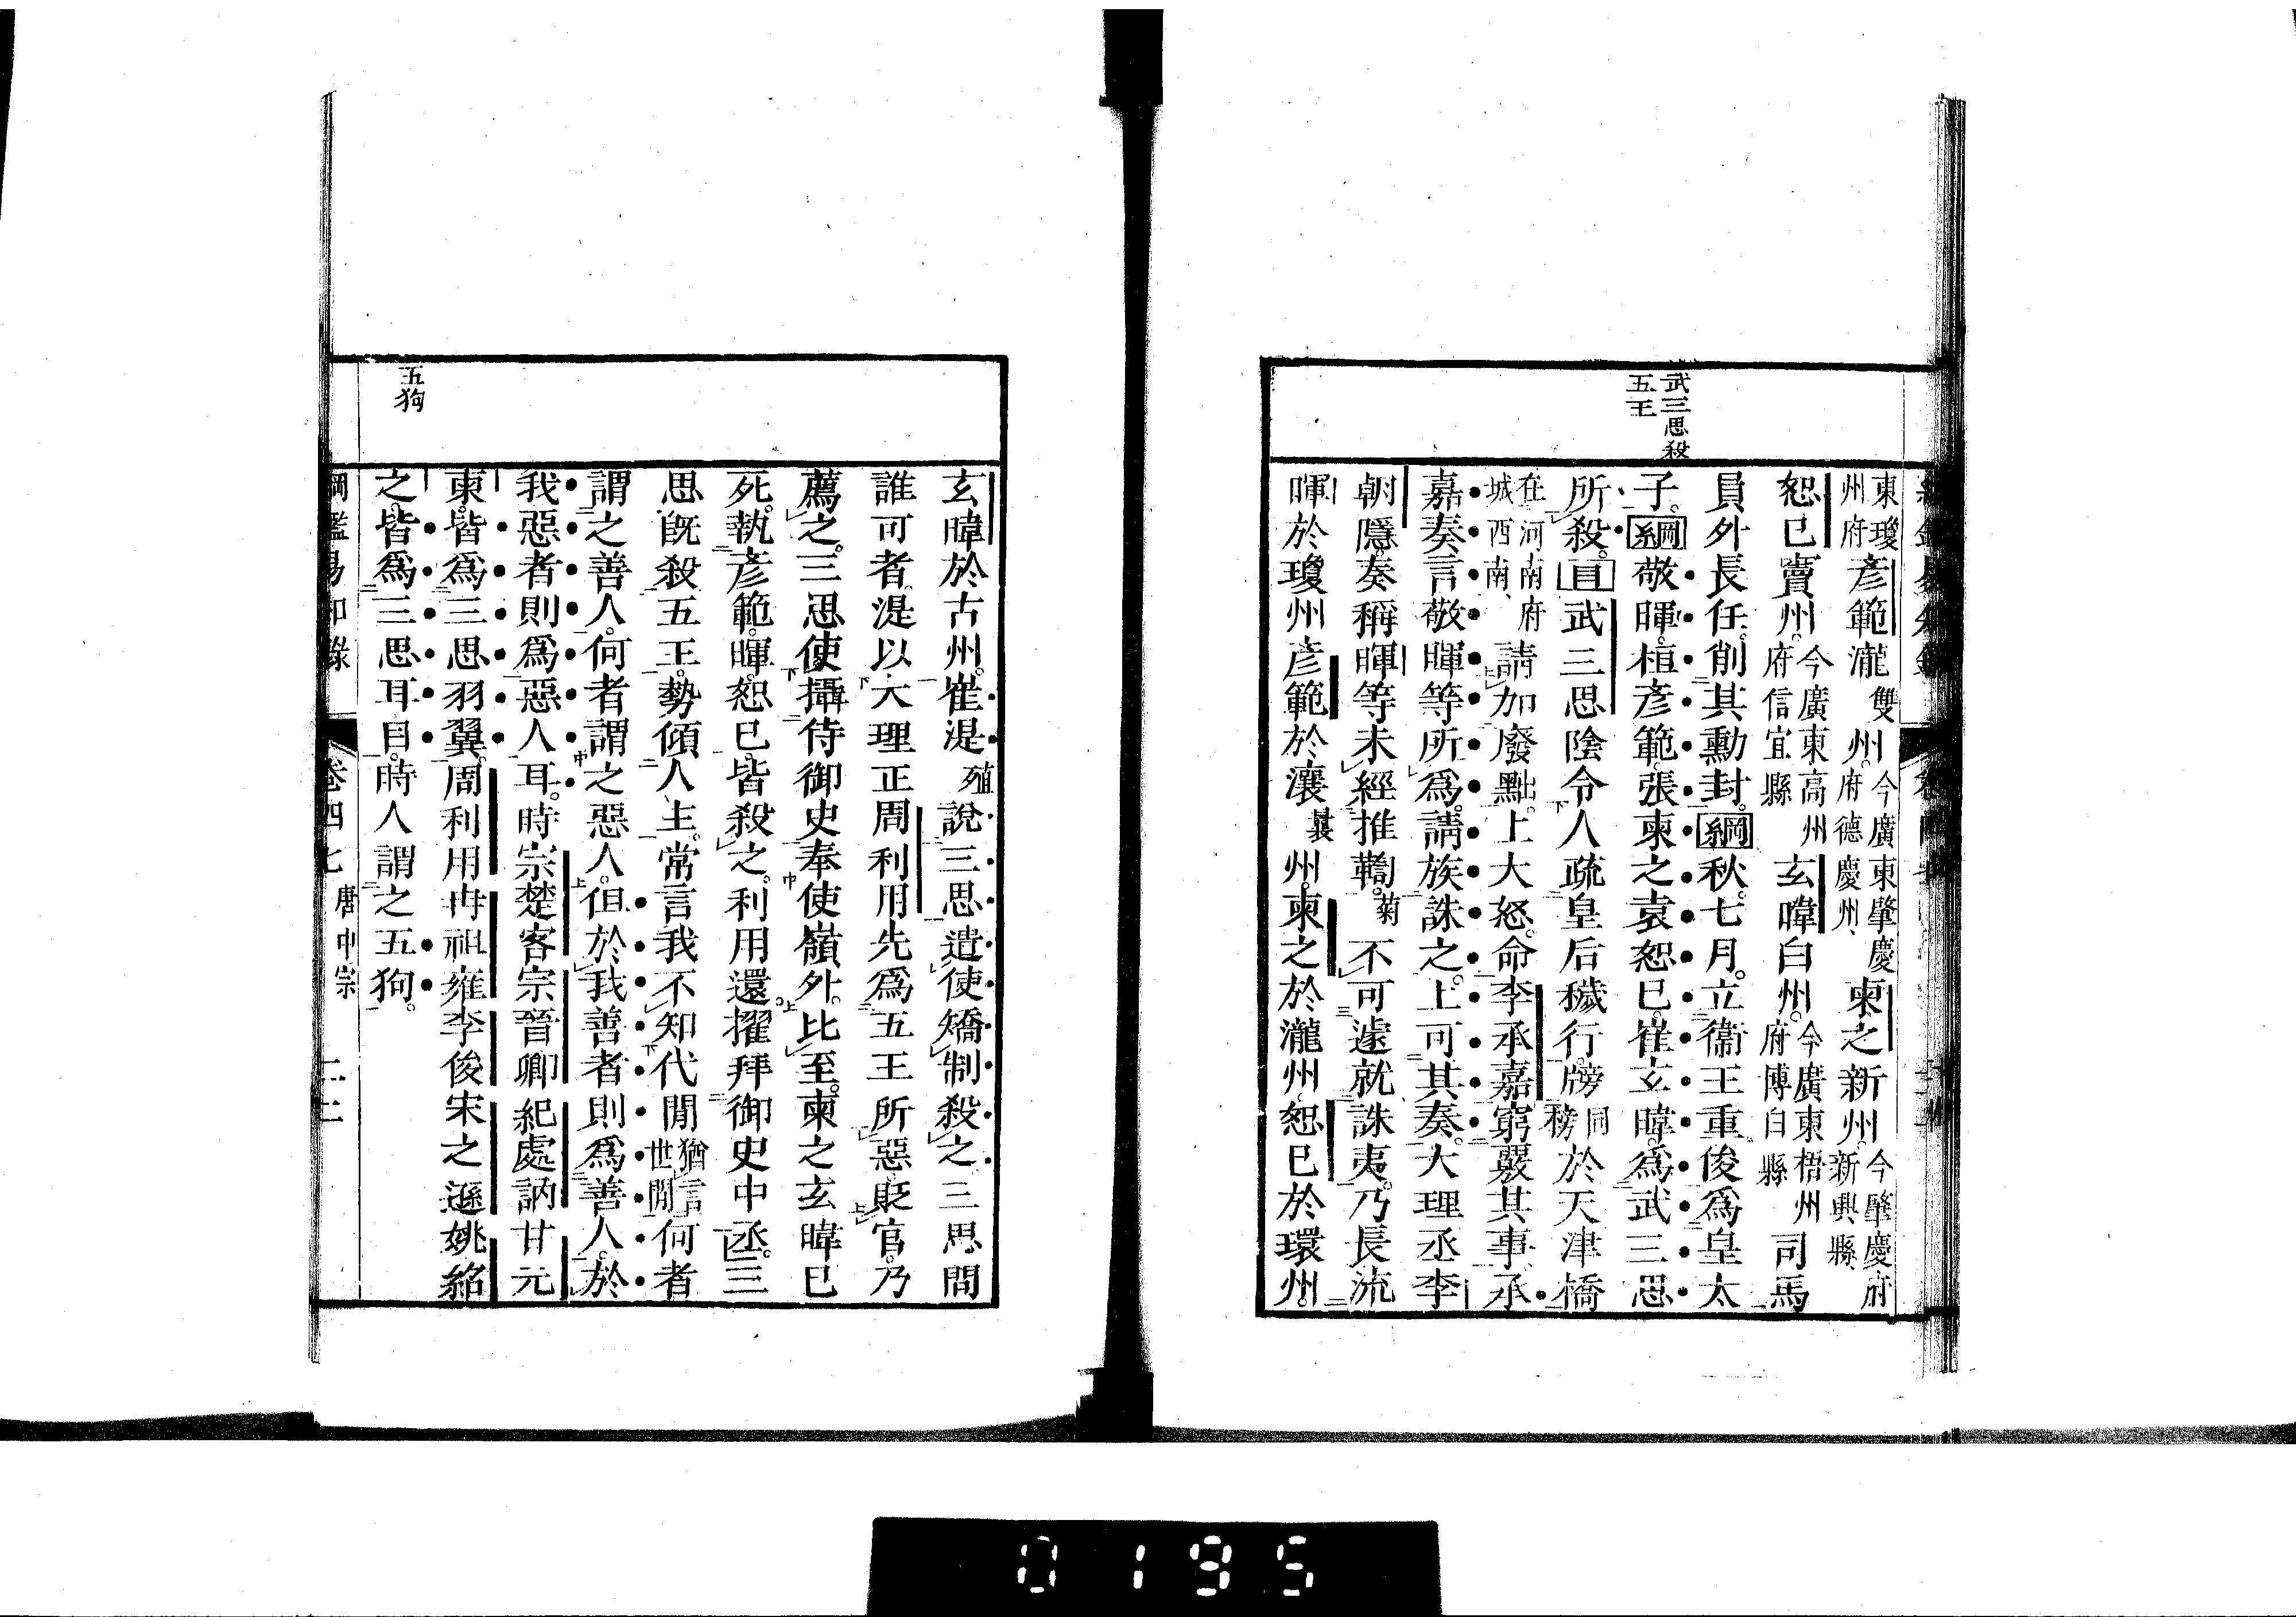 武三思殺
五王
東瓊州府彥範瀧雙州今廣東肇慶府德慶州柬之新州今肇慶府新興縣
恕已竇州今廣東高州府信宜縣玄暐白州今廣東梧州府博白縣司馬
員外長任削其勳封綱秋七月立衞王重俊爲皇太
子綱敬暉桓彥範張柬之袁恕已崔玄暐爲武三思
所殺目武三思陰令人疏皇后穢行牓同榜於天津橋
在河南府城西南請加廢黜上大怒命李承嘉窮覈其事承
嘉奏言敬暉等所爲請族誅之上可其奏大理丞李
朝隱奏稱暉等未經推鞫菊不可遽就誅夷乃長流
暉於瓊州彥範於瀼曩州柬之於瀧州恕已於環州
玄暐於古州崔湜殖說三思遣使矯制殺之三思問
誰可者湜以大理正周利用先爲五王所惡貶官乃
薦之三思使攝侍御史奉使嶺外比至柬之玄暐已
死執彥範暉恕已皆殺之利用還擢拜御史中丞三
思旣殺五王勢傾人主常言我不知代閒猶言世閒何者
謂之善人何者謂之惡人但於我善者則爲善人於
我惡者則爲惡人耳時宗楚客宗晉卿紀處訥甘元
柬皆爲三思羽翼周利用冉祖雍李俊宋之遜姚紹
之皆爲三思耳目時人謂之五狗
五狗
綱鑑易知錄 卷四七 唐中宗 二二
0195